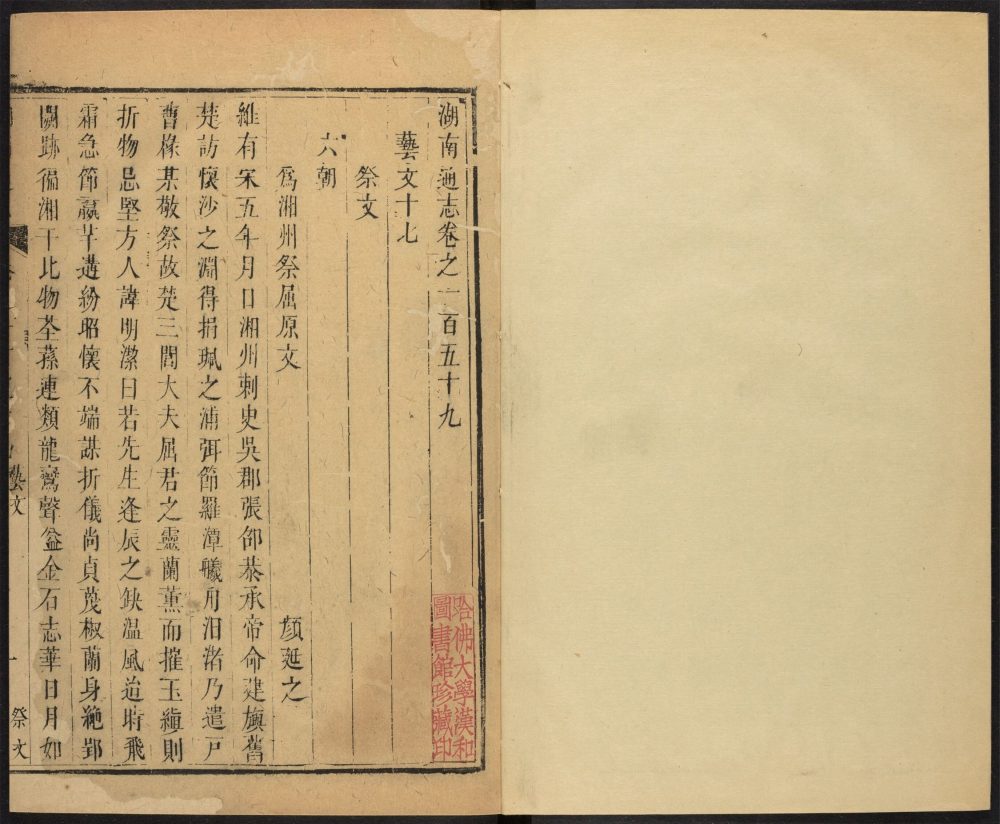 湖南通志卷之一百五十九
藝文十七
祭文
六朝
爲湘州祭屈原文 顏延之
維有宋五年月日湘州刺史吳郡張邵恭承帝命建旟舊
楚訪懷沙之淵得捐珮之浦弭節羅潭艤舟汨渚乃遣戸
曹掾某敬祭故楚三閭大夫屈君之靈蘭薫而摧玉縝則
折物忌堅方人諱明潔曰若先生逢辰之缺温風迨時飛
霜急節嬴芉遘紛昭懷不端謀折儀尚貞蔑椒蘭身絶郢
闕跡徧湘干比物荃蓀連類龍鸞聲溢金石志華日月如
藝文
一
祭文
哈佛大學漢和
圖書館珍藏印